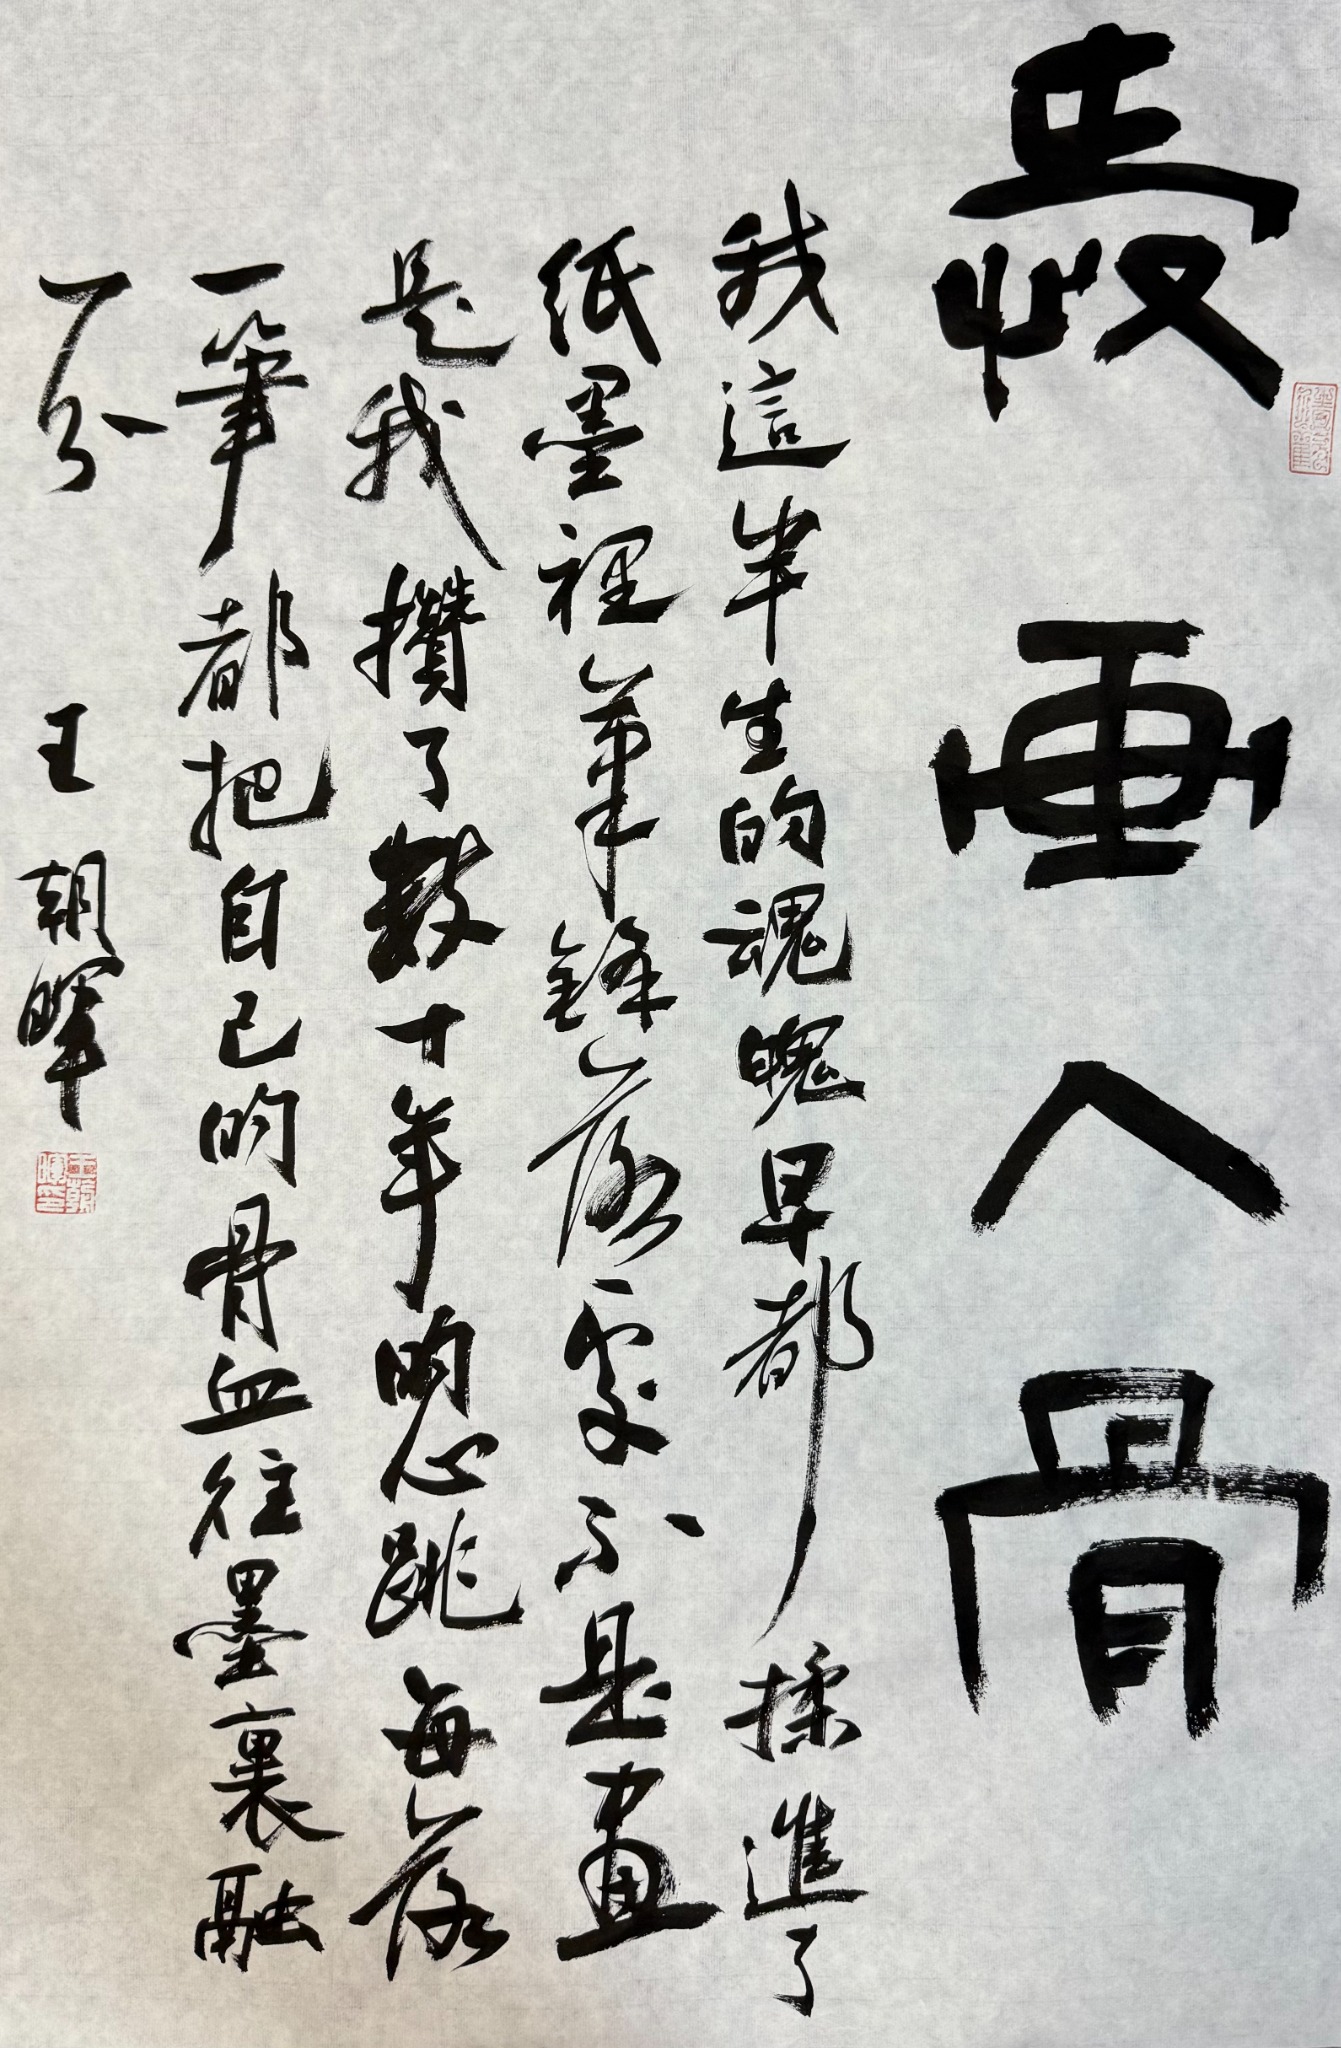 愛画入骨
我這半生的魂魄早都揉進了
紙墨裡筆鋒落處不是畫
是我攢了數十年的心跳每落
一筆都把自己的骨血往墨裏融
一分 王朝暉
王朝暉印